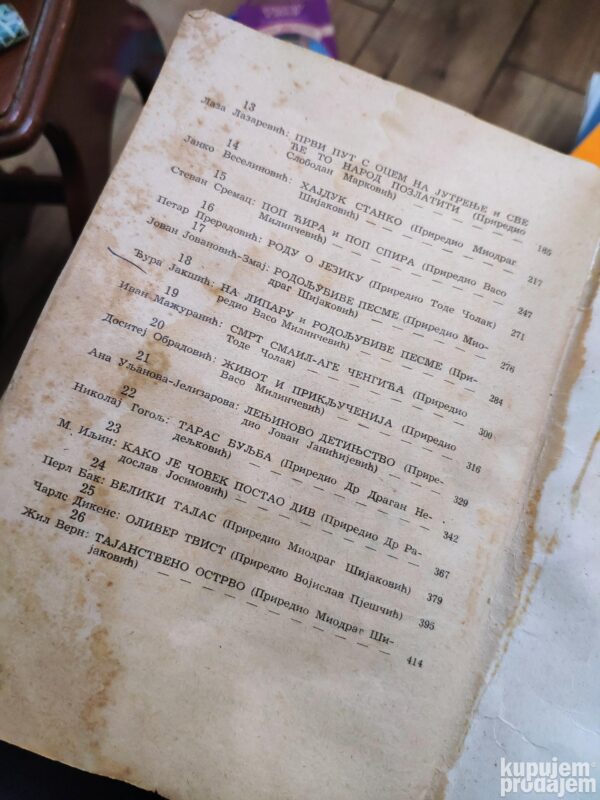 13
Лаза Лазаревић: ПРВИ ПУТ С ОЦЕМ НА ЈУТРЕЊЕ и СВЕ
ЋЕ ТО НАРОД ПОЗЛАТИТИ (Приредио
Слободан Марковић) — — — — — — 185
14
Јанко Веселиновић: ХАЈДУК СТАНКО (Приредио Миодраг
Шијаковић) — — — — — — — 217
15
Стеван Сремац: ПОП ЋИРА и ПОП СПИРА (Приредио Васо
Милинчевић) — — — — — — — 247
16
Петар Прерадовић: РОДУ О ЈЕЗИКУ (Приредио Тоде Чолак) 271
17
Јован Јовановић-Змај: РОДОЉУБИВЕ ПЕСМЕ (Приредио Мио-
драг Шијаковић) — — — — — — 276
18
Ђура Јакшић: НА ЛИПАРУ и РОДОЉУБИВЕ ПЕСМЕ (При-
редио Васо Милинчевић) — — — — — 284
19
Иван Мажуранић: СМРТ СМАИЛ-АГЕ ЧЕНГИЋА (Приредио
Тоде Чолак) — — — — — — — 300
20
Доситеј Обрадовић: ЖИВОТ И ПРИКЉУЧЕНИЈА (Приредио
Васо Милинчевић) — — — — — — 316
21
Ана Уљанова-Јелизарова: ЛЕЊИНОВО ДЕТИЊСТВО (Прире-
дио Јован Јанићијевић) — — — — — 329
22
Николај Гогољ: ТАРАС БУЉБА (Приредио Др Драган Не-
дељковић) — — — — — — — 342
23
М. Иљин: КАКО ЈЕ ЧОВЕК ПОСТАО ДИВ (Приредио Др Ра-
дослав Јосимовић) — — — — — — 367
24
Перл Бак: ВЕЛИКИ ТАЛАС (Приредио Миодраг Шијаковић) 379
25
Чарлс Дикенс: ОЛИВЕР ТВИСТ (Приредио Војислав Пјешчић) 395
26
Жил Верн: ТАЈАНСТВЕНО ОСТРВО (Приредио Миодраг Ши-
јаковић) — — — — — — — — 414
kupujem
prodajem